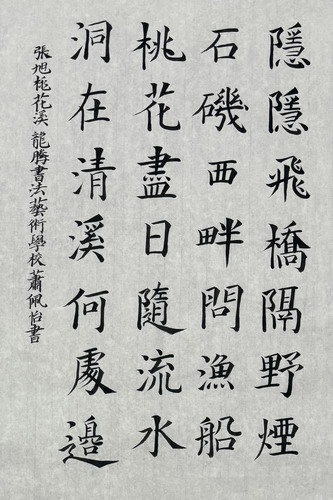 隱隱飛橋隔野煙
石磯西畔問漁船
桃花盡日隨流水
洞在清溪何處邊
張旭桃花溪 龍騰書法藝術學校 蕭佩怡書